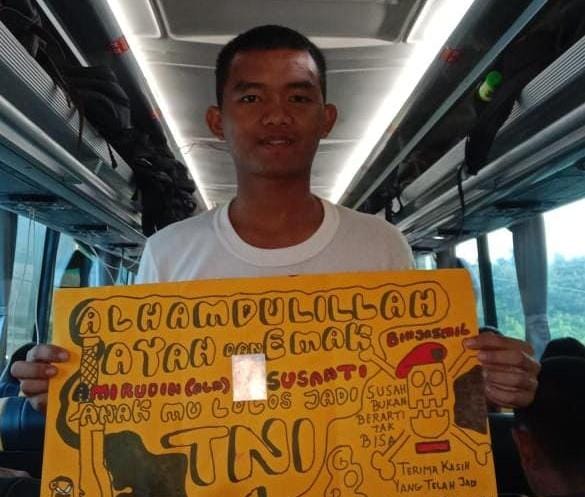 ALHAMDULILLAH
AYAH DAN EMAK
AMIRUDIN (ALM) SUSANTI
ANAK MU LULOS JADI
TNI
BINJASMIL
SUSAH
BUKAN
BERARTI
TAK
BISA
TERIMA KASIH
YANG TELAH JADI